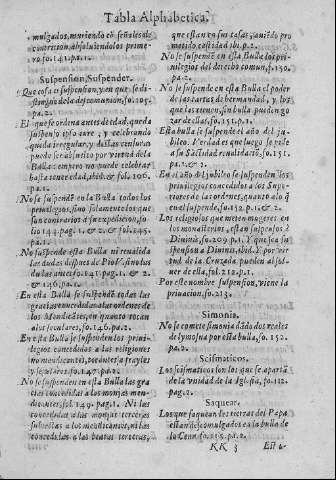 Tabla Alphabetica.
mulgados, muriendo cõ señales de
contricion, absoluiendolos prime-
ro fo. 141. pa. 1.
Suspension, Suspender.
Que cosa es suspension, y en que se di-
stingue de la descomunion, fo. 105.
pa. 2.
El que se ordena antes de edad, queda
suspenso ipso iure, y celebrando
queda irregular, y destas censuras
puede ser absuelto por virtud de la
Bulla: empero no puede celebrar
hasta tener edad, ibi. & fol. 106.
pa. 1.
No se suspendē en la Bulla todos los
priuilegios, sino solamente los que
son contrarios à su expedicion, fo
lio 144. pag. 1. & 2. & fol. 245.
pa. 1.
No suspende esta Bulla ni reualida
las dudas despues de Pio V. sino las
dudas antes fo. 141. pag. 1. & 2.
& 146. pa. 1.
En esta Bulla se suspendē todas las
gracias concedidas a las ordenes de
los Mendicātes, en quanto tocan
a los seculares, fo. 146. pa. 2.
En esta Bulla se suspenden los priui-
legios concedidos a las religiones
no mendicantes, por entero a frayles
y seculares fo. 147. pa. 2.
No se suspenden en esta Bulla las gra
cias concedidas a las monjas mēdi
cantes, fol. 149. pag. 1. Ni las
concedidas a las monjas terceras
subiectas a los mendicantes, ni las
concedidas a las beatas terceras,
que estan en sus casas, auiēdo pro
metido castidad ibi. p. 2.
No se suspendē en esta Bulla los priui-
legios del derecho comun, f. 150.
pa. 2.
No se suspende en esta Bulla el poder
de las cartas de hermandad, y los
que las tienen, sin Bulla pueden go
zar dellas, fo. 151. p. 1.
Esta bulla se suspende el año del ju-
bileo. Verdad es que luego se pide
a su Sãctidad reualidaciõ, fo. 151.
p. 1. & 2.
En el año del jubileo se suspenden los
priuilegios concedidos a los Supe-
riores de las ordenes, quanto alo q̃
en el suspende, fo. 152. p. 1. & 2.
Los religiosos que meten mugeres en
los monasterios, estan suspensos à
Diuinis, fo. 209. p. 1. Y que sea su
spension a Diuinis, ibid. Y por vir
tud de la Cruzada pueden absol-
uer della, fol. 212. p. 1.
Por este nombre suspension, viene la
priuacion, fo. 213.
Simonia.
No se comete simonia dãdo dos reales
de lymosna por esta bulla, fo. 152.
pa. 2.
Scismaticos.
Los scismaticos son los que se apartã
de la vnidad de la Yglesia, fo. 112.
pag. 2.
Saquear.
Los que saquean las tierras del Papa
estan descomulgados en la bulla de
la Cena fo. 215. pa. 2.
KK 3
Est a